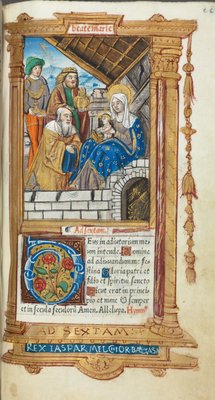 beate marie
Ad sextam.
Deus in adiutorium meum
um intende. Domine
ad adiuuandum me fe
stina Gloria patri et
filio et spiritui sancto
Sicut erat in princi
pio et nunc et semper
et in secula seculorũ Amen. Alleluya. Hymn9
AD SEXTAM
REX IASPAR MELCIOR BA